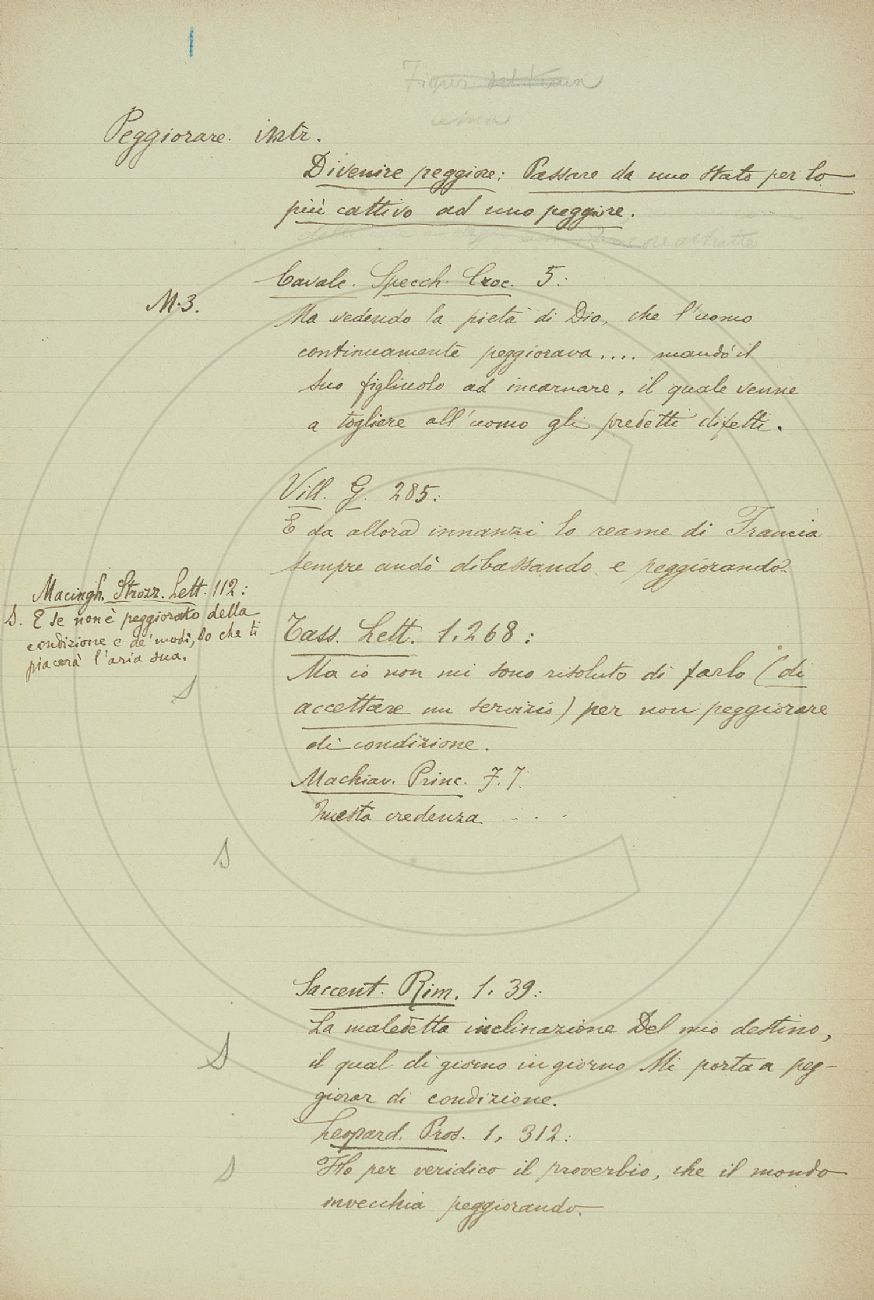 Peggiorare. intr.
Divenire peggiore; Passare da uno stato per lo
più cattivo ad uno peggiore.
Cavalc. Specch. Croc. 5:
M. 3.
Ma vedendo la pietà di Dio, che l'uomo
continuamente peggiorava.... mandò il
suo figliuolo ad incarnare, il quale venne
a togliere all'uomo gli predetti difetti.
Vill. G. 285:
E da allora innanzi lo reame di Francia
sempre andò dibassando e peggiorando.
Macingh. Strozz. Lett. 112:
S. E se non è peggiorato della
condizione e de' modi, so che ti
piacerà l'aria sua.
Tass. Lett. 1.268:
Ma io non mi sono risoluto di farlo (di
accettare un servizio) per non peggiorare
di condizione.
S
Machiav. Princ. 7.7.
Questa credenza . . .
S
Saccent. Rim. 1. 39:
La maledetta inclinazione Del mio destino,
S
il qual di giorno in giorno Mi porta a peg-
giorar di condizione.
Leopard. Pros. 1, 312:
S
Ho per veridico il proverbio, che il mondo
invecchia peggiorando.